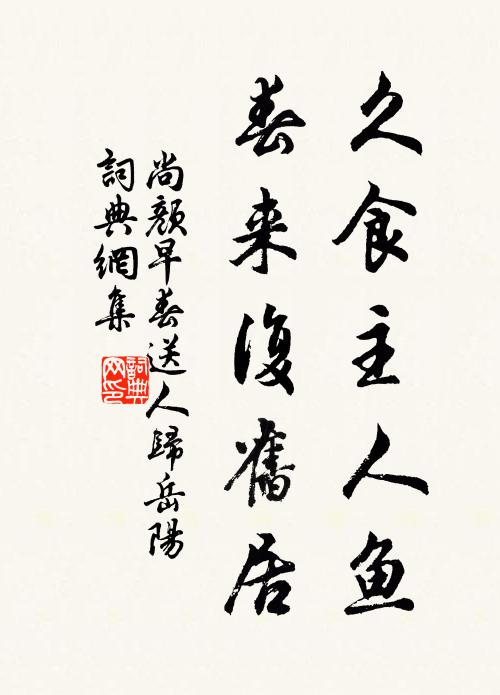 久食主人鱼
春来復舊居
尚顏早春送人歸岳陽
詞典網集
詞典
网印